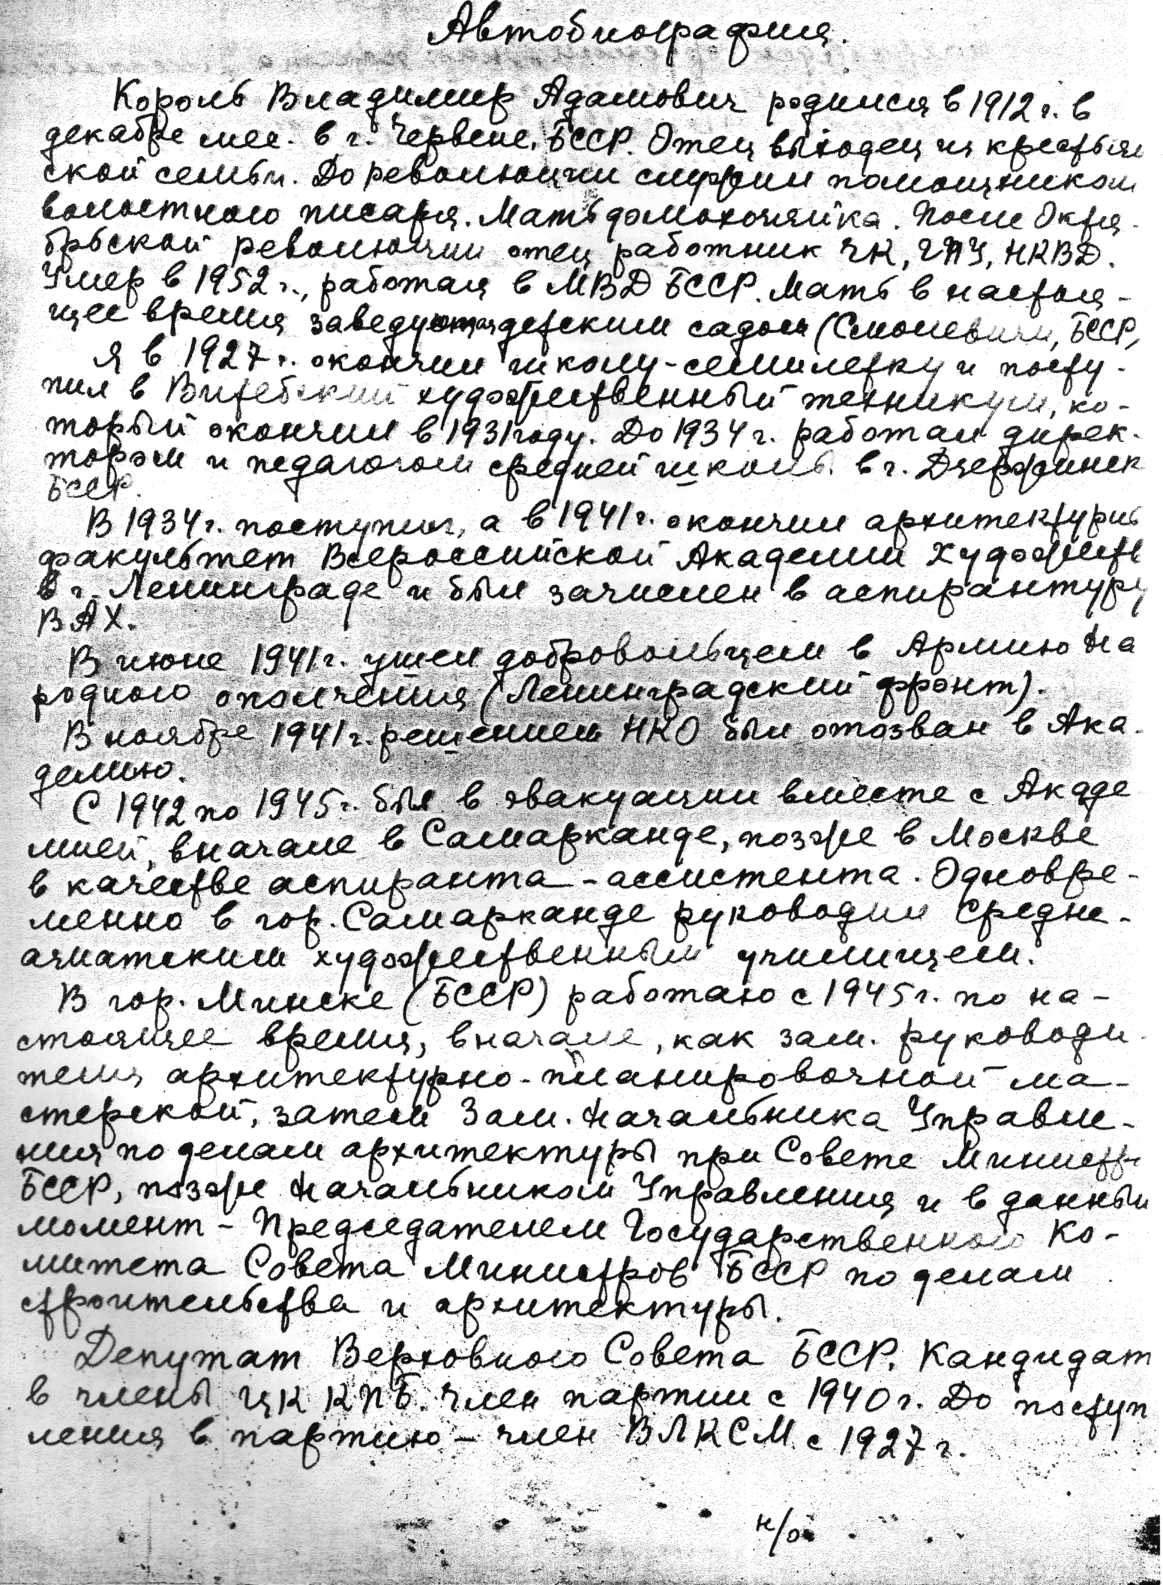 Автобиография.
Король Владимир Адамович родился в 1912 г. в
декабре мес. в г. Червене, БССР. Отец выходец из крестьян
ской семьи. До революции служил помощником
волостного писаря. Мать домохозяйка. После Октя-
брьской революции отец работник ЧК, ГПУ, НКВД.
Умер в 1952 г., работая в МВД БССР. Мать в настоя-
щее время заведующая детским садом (Смолевичи, БССР,
Я в 1927 г. окончил школу-семилетку и посту-
пил в Витебский художественный техникум, ко-
торый окончил в 1931 году. До 1934 г. работал дирек-
тором и педагогом средней школы в г. Дзержинск
БССР.
В 1934 г. поступил, а в 1941 г. окончил архитектурн
факультет Всероссийской Академии Художеств
в г. Ленинграде и был зачислен в аспирантуру
ВАХ.
В июне 1941 г. ушел добровольцем в Армию На
родного ополчения (Ленинградский фронт).
В ноябре 1941 г. решением НКО был отозван в Ака-
демию.
С 1942 по 1945 г. был в эвакуации вместе с Акаде
мией, вначале в Самарканде, позже в Москве
в качестве аспиранта-ассистента. Одновре-
менно в гор. Самарканде руководил Средне-
азиатским художественным училищем.
В гор. Минске (БССР) работаю с 1945 г. по на-
стоящее время, вначале, как зам. руководи-
теля архитектурно-планировочной ма-
стерской, затем Зам. Начальника Управле-
ния по делам архитектуры при Совете Министр
БССР, позже Начальником Управления и в данный
момент – Председателем Государственного Ко-
митета Совета Министров БССР по делам
строительства и архитектуры.
Депутат Верховного Совета БССР. Кандидат
в члены ЦК КПБ. Член партии с 1940 г. До поступ
ления в партию – член ВЛКСМ с 1927 г.
н/о